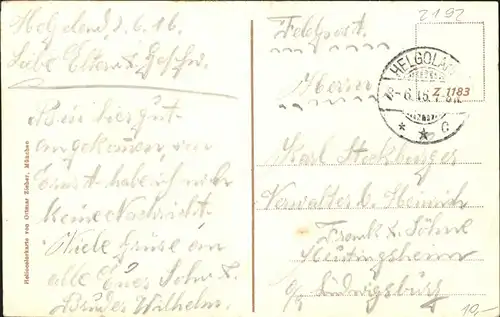 2192
Helgoland, 8.6.16.
Liebe Eltern u. Geschw.
Bin hier gut
angekommen, von
Ernst habe ich noch
keine Nachricht.
Viele Grüße an
alle Euer Sohn u.
Bruder Wilhelm.
Heliocolorkarte von Ottmar Zieher, München
Feldpost.
Herrn
HELGOLAND
Z. 1183
* * c
Karl Stockburger
Verwalter b. Heinrich
Franck u. Söhne
b/ Ludwigsburg
10,-